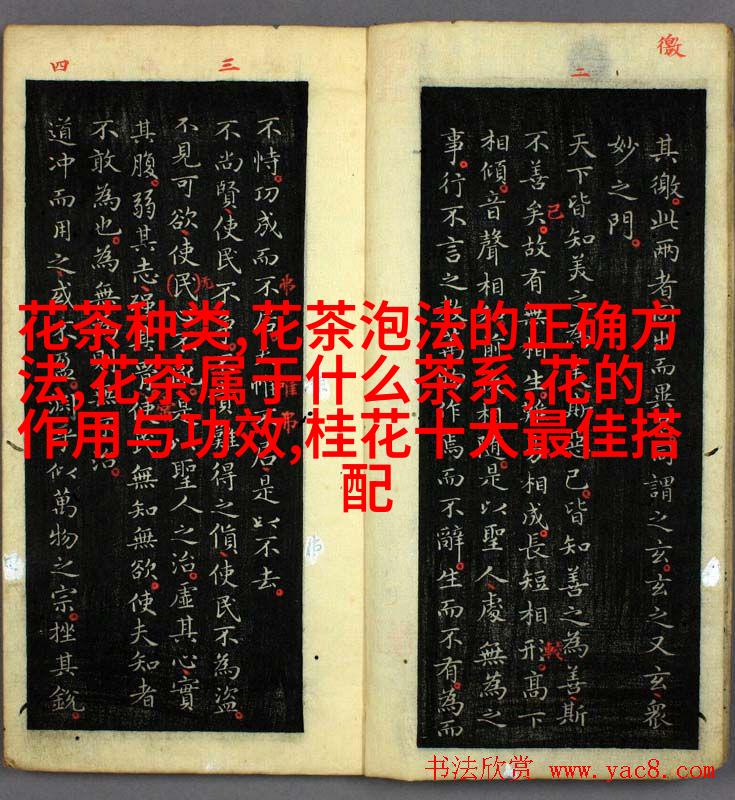 花茶种类,花茶泡法的正确方
法,花茶属于什么茶系,花的
作用与功效,桂花十大最佳搭
配
徼
二
其徼此兩者同出而異謂之玄玄之又玄衆
妙之門
天下皆知美之已皆知善之為善斯
不善矣故有無相生相成長短相形高下
相傾音聲相前相是以聖人處無為之
事行不言之作焉而不辭生而不有為而
三
四
不恃功成而不居惟不居是以不去
不尚賢使民不難得之貨使民不為盜
不見可欲使民是以聖人之治虛其心實
其腹弱其志强其使民無知無欲使夫知者
不敢為也為無則無治
道冲而用之或不盈淵乎似萬物之宗挫其銳
书法欣赏 www.yac8.com